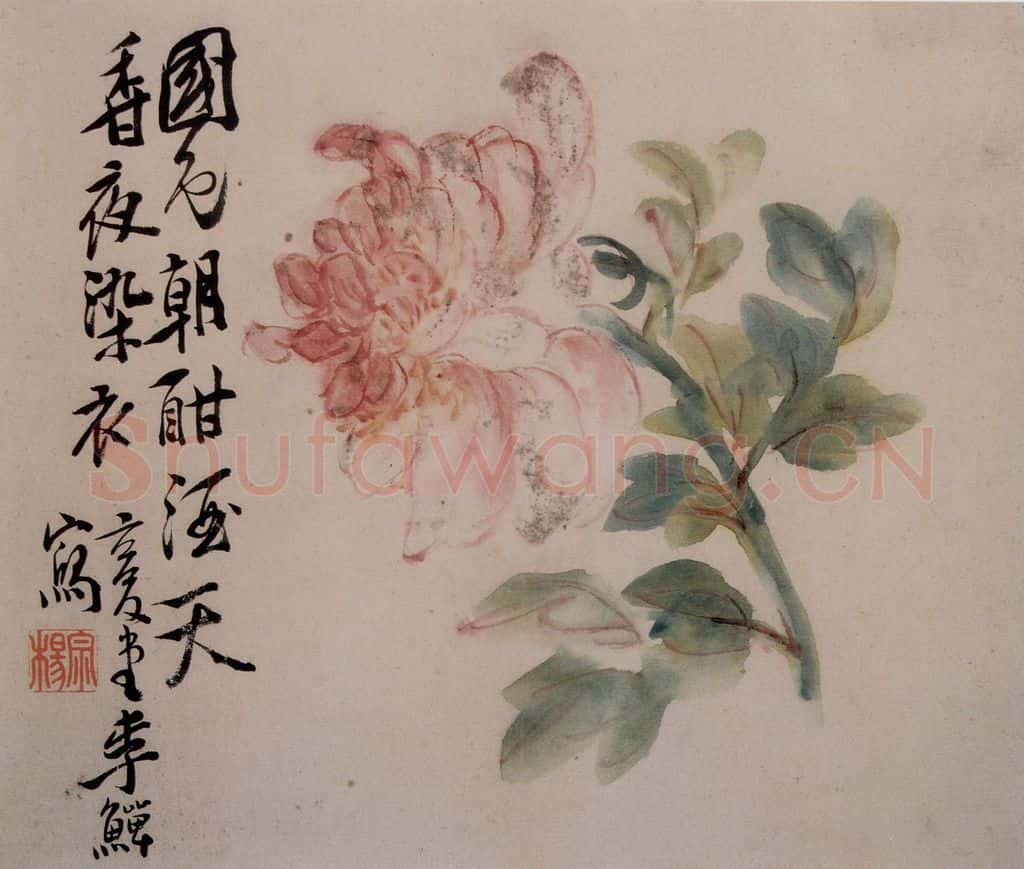 國色朝酣酒天
香夜染衣
复堂李鱓
寫
宗楊
Shufawang.CN